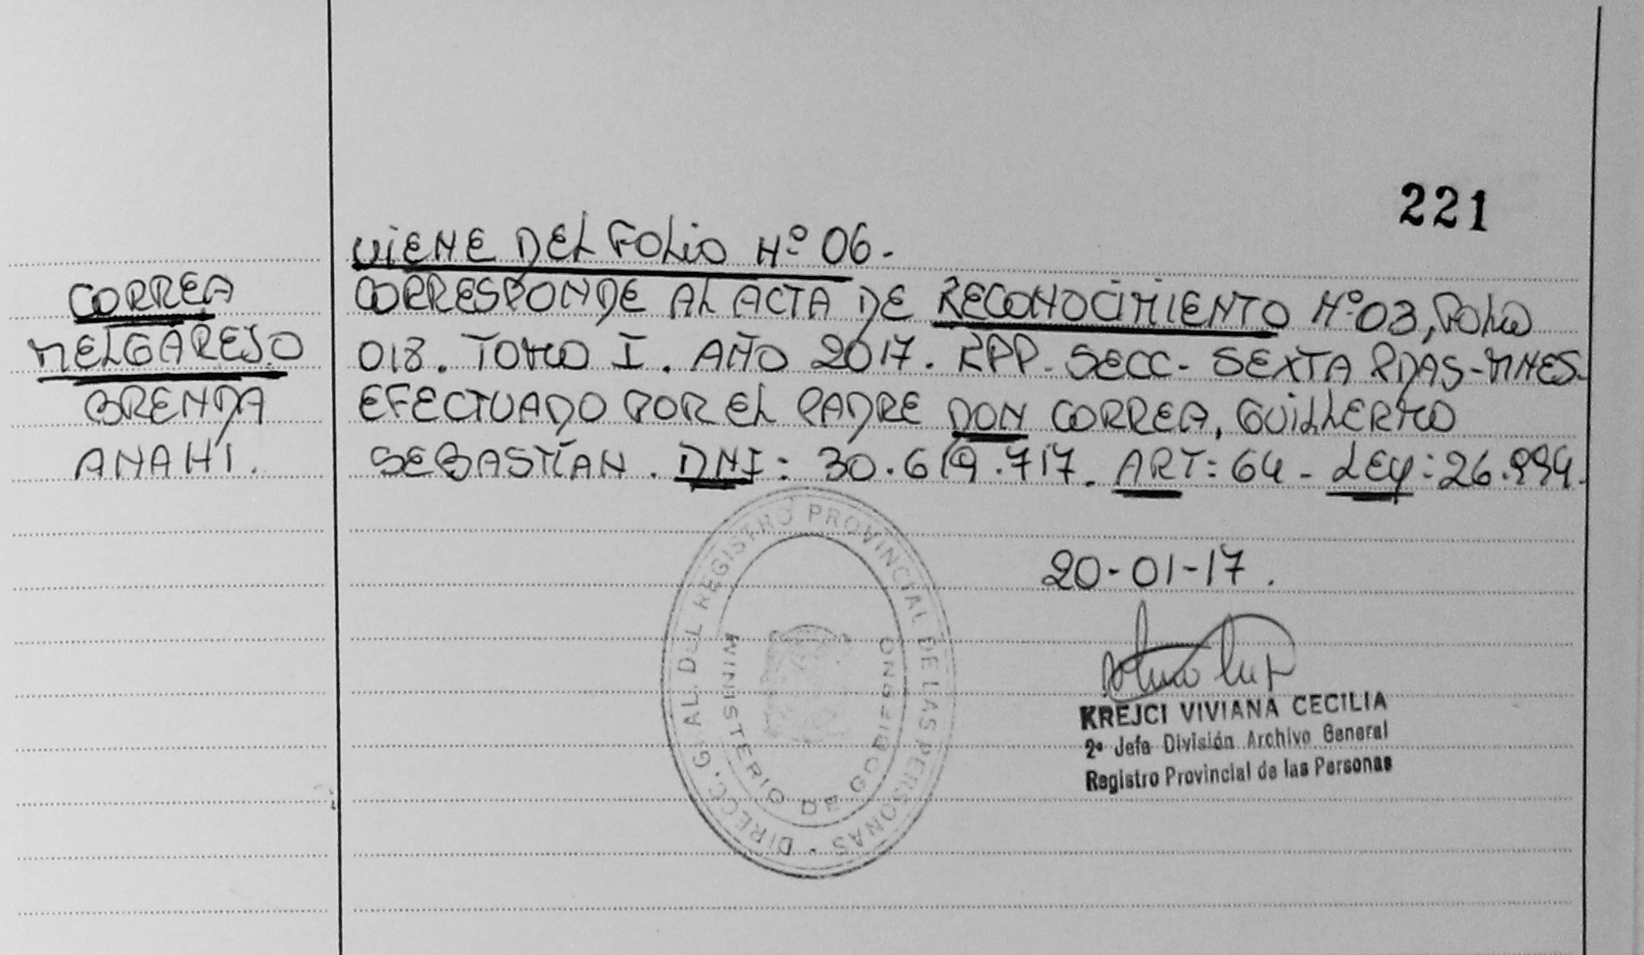 221
VIENE DEL FOLIO Nº 06.
CORREA
MELGAREJO
BRENDA
ANAHI.
CORRESPONDE AL ACTA DE RECONOCIMIENTO Nº 03, FOLIO
018. TOMO I. AÑO 2017. RPP. SECC- SEXTA PDAS-MNES.
EFECTUADO POR EL PADRE DON CORREA, GUILLERMO
SEBASTÍAN. DNI: 30.619.717. ART: 64 - LEY: 26.994.
20-01-17.
KREJCI VIVIANA CECILIA
2ª Jefa División Archivo General
Registro Provincial de las Personas
DIRECC. GRAL. DEL REGISTRO PROVINCIAL DE LAS PERSONAS
MINISTERIO DE GOBIERNO